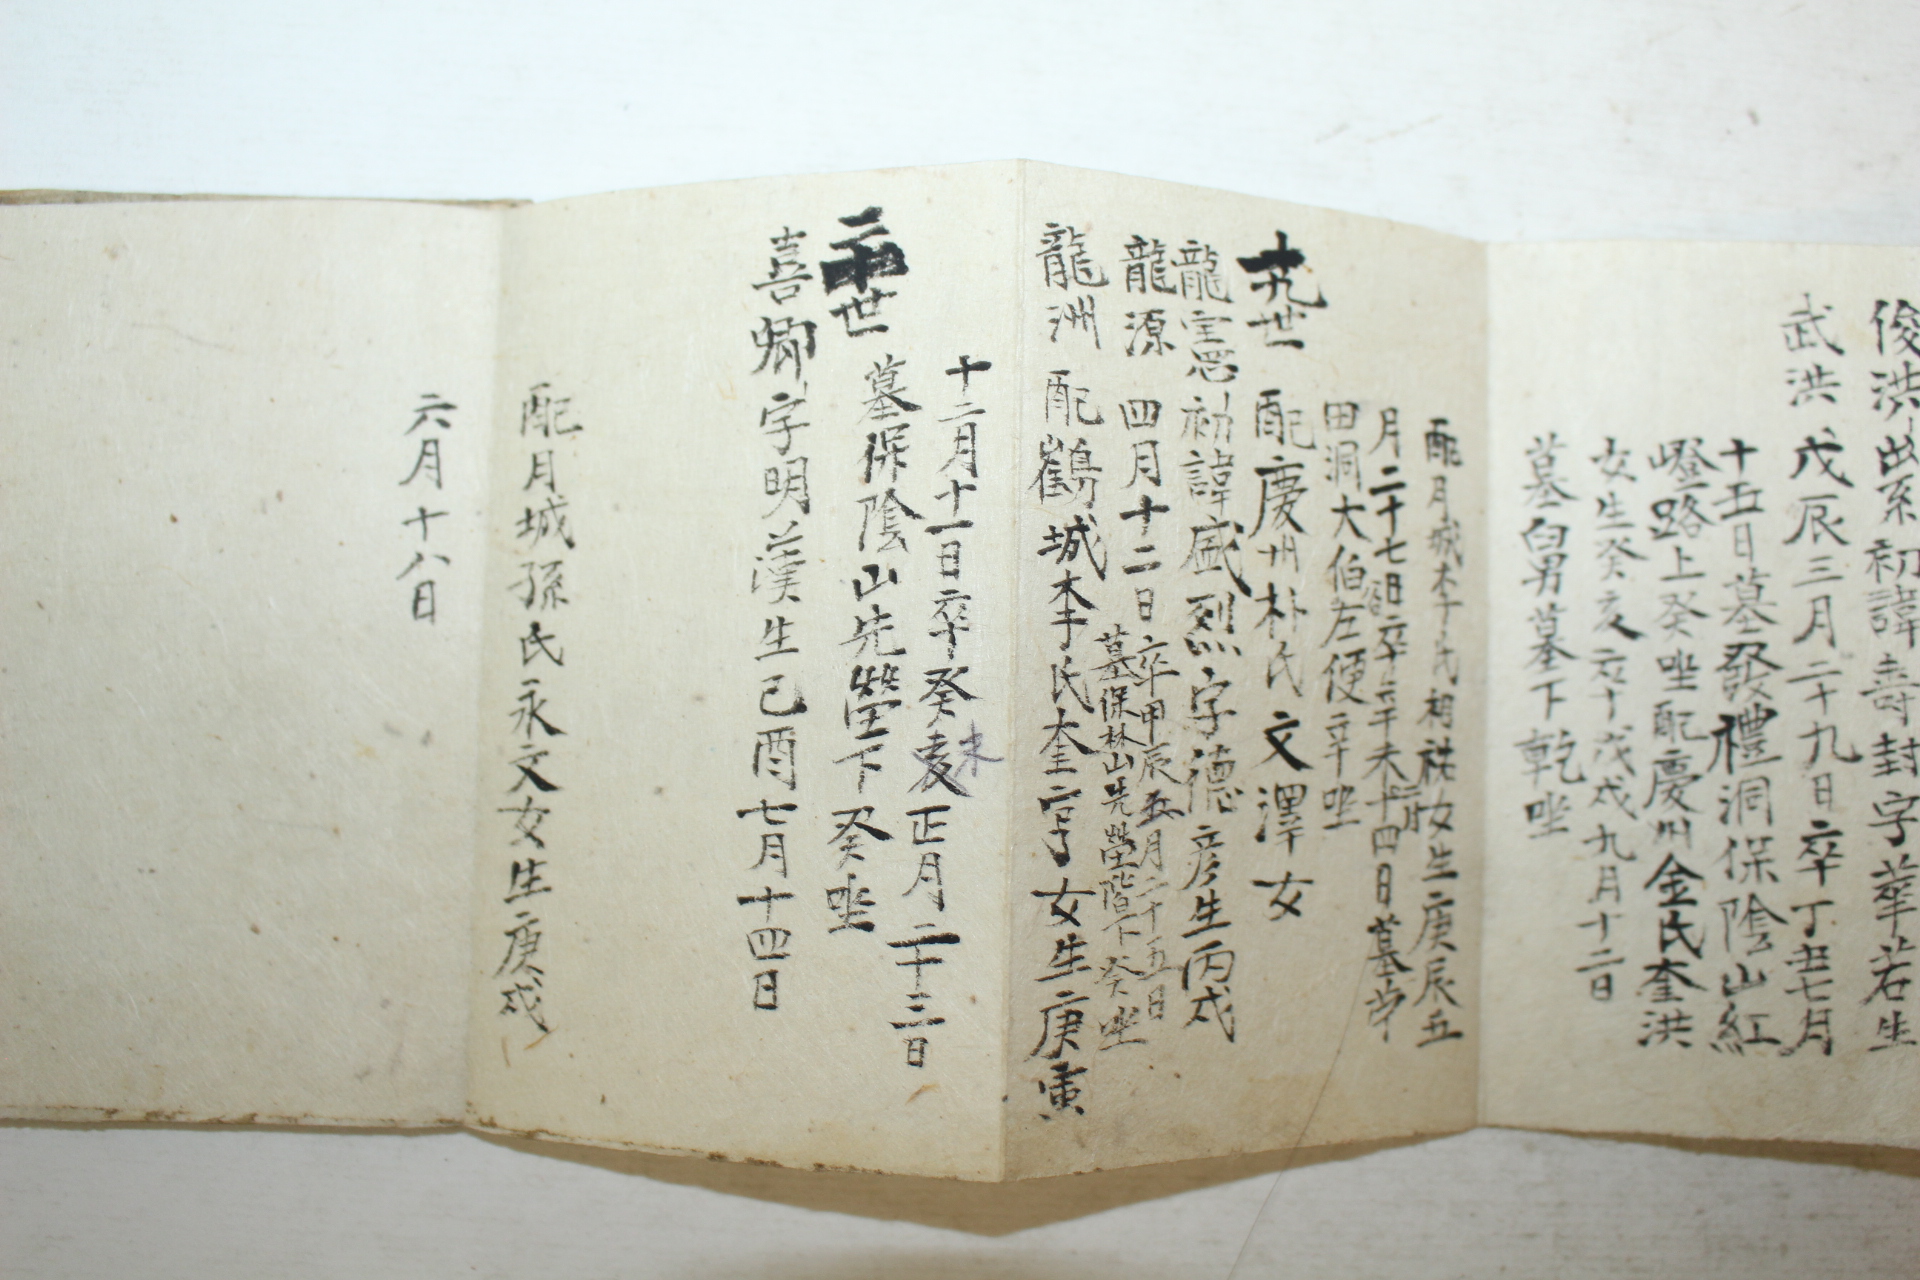 俊洪出系初諱壽封字華若生
武洪 戊辰三月二十九日卒丁丑七月
十五日墓發禮洞保陰山紅
嶝路上癸坐配慶州金氏奎洪
女生癸亥六十戊戌九月十二日
墓舅墓下乾坐
配月城李氏祖女生庚辰五
月二十七日卒辛未十四日墓
田洞大伯左便辛坐
十九世 配慶州朴氏文澤女
龍憲初諱盛烈字德彦生丙戌
龍源 四月十二日卒甲辰五月二十五日
墓保林山先塋階下癸坐
龍洲 配鶴城李氏奎亨女生庚寅
十二月十一日卒癸未正月二十三日
二十世 墓保陰山先塋下癸坐
喜卿字明漢生己酉七月十四日
配月城孫氏永文女生庚戌
六月十八日